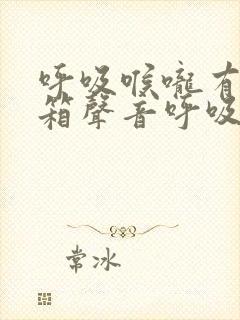 呼吸喉嚨有
箱聲音呼吸
常冰